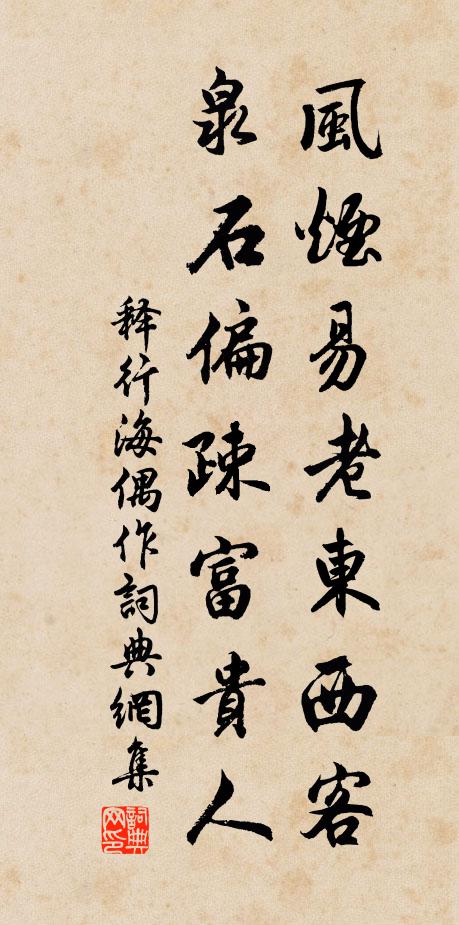 風煙易老東西客
泉石偏疎富貴人
释行海偶作詞典網集
詞典網印